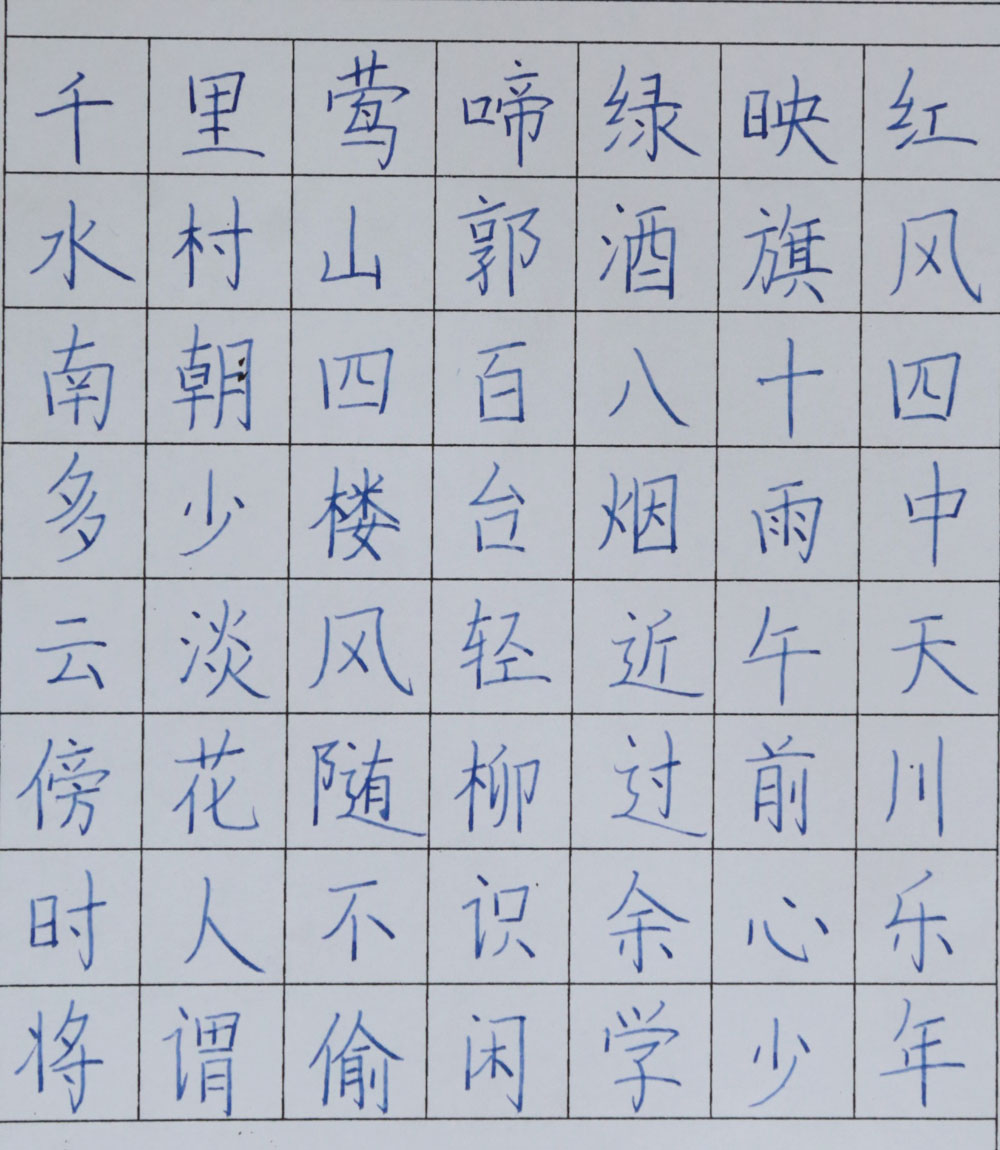 千里莺啼绿映红
水村山郭酒旗风
南朝四百八十四
多少楼台烟雨中
云淡风轻近午天
傍花随柳过前川
时人不识余心乐
将谓偷闲学少年